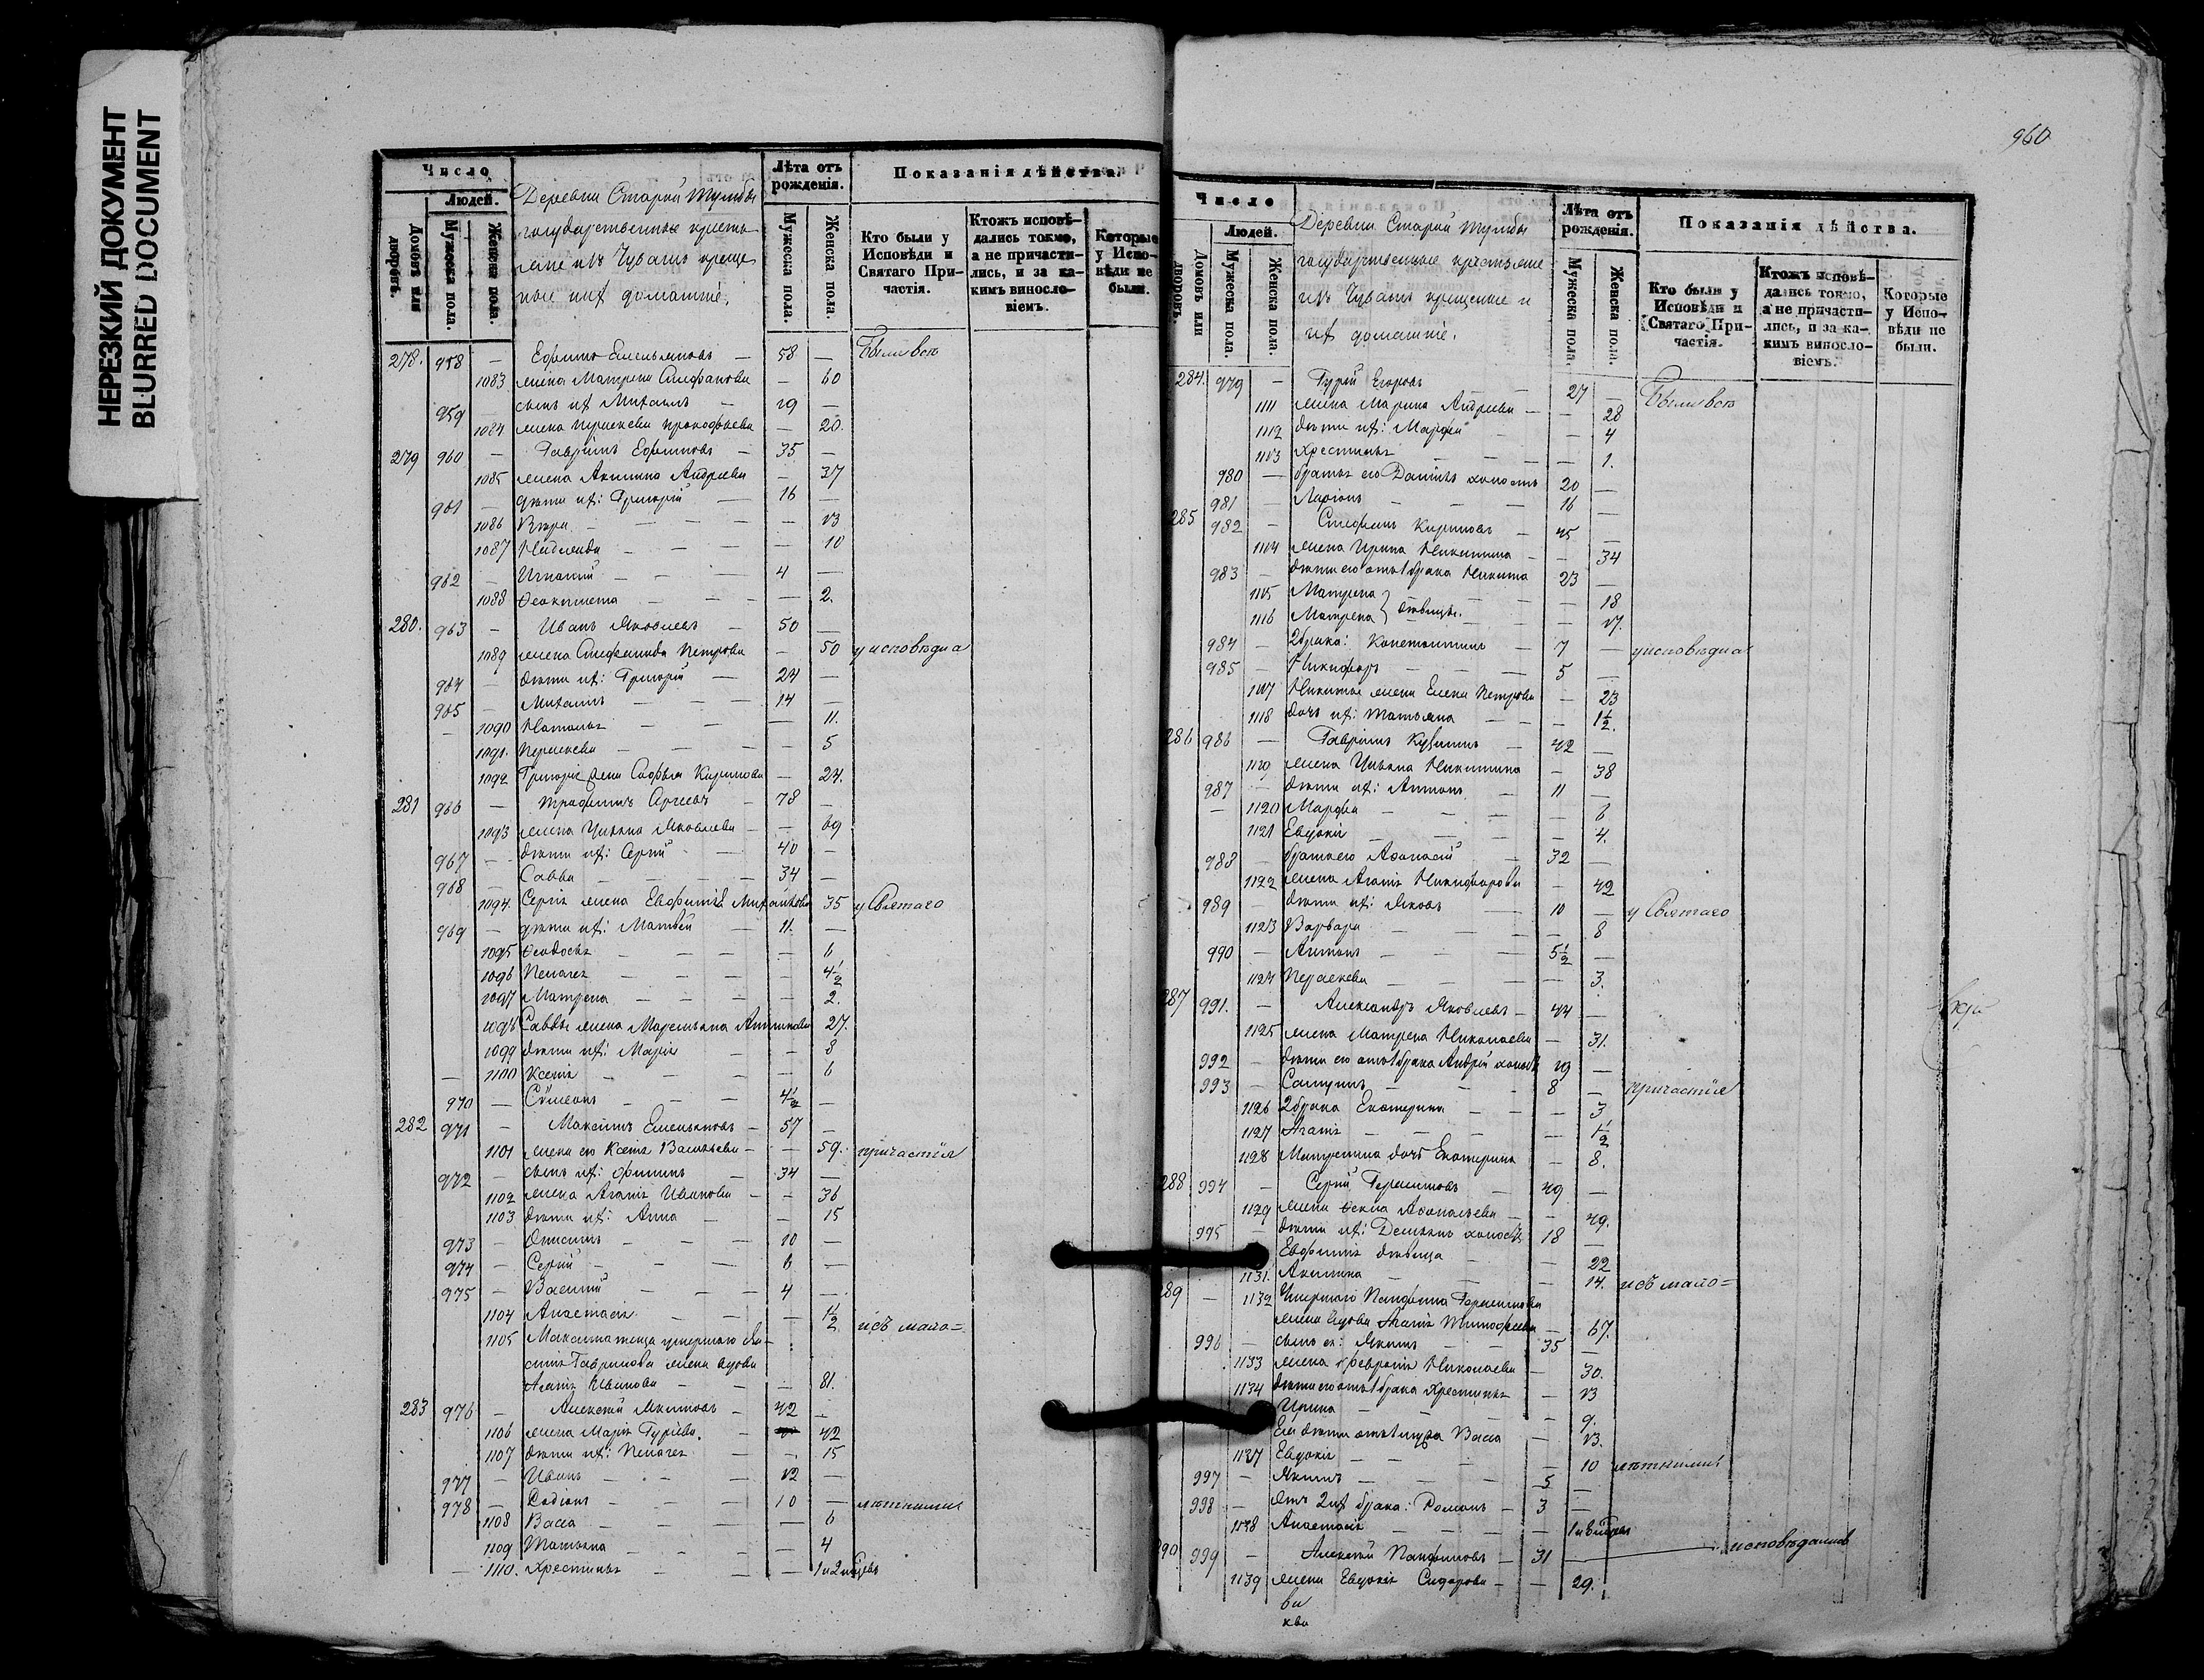 НЕРЕЗКИЙ ДОКУМЕНТ
BLURRED DOCUMENT
Число
Людей.
Домовъ или дворовъ.
Мужеска пола.
Женска пола.
Деревни Старой
государственные кресть
яне изъ Чувашъ креще
ные ихъ домашніе.
Лѣта отъ рожденія.
Мужеска пола.
Женска пола.
Показанія дѣйства.
Кто были у Исповѣди и Святаго Причастія.
Ктожъ исповѣдались токмо, а не причастились, и за какимъ винословіемъ.
Которые у Исповѣди не были.
278. 958 — Ефимъ Емельяновъ — 58 — Были всѣ
1083 жена Матрена Стефанова — 60
959 — сынъ ихъ Михаилъ — 19 —
1084 жена Параскева Прокофьева — 20.
279 960 — Гавріилъ Ефимовъ — 35 —
1085 жена Акилина Андреева — 37
961 — дѣти ихъ: Григорій — 16 —
1086 Вѣра — 13
1087 — 10
962 — Игнатій — 4 —
1088 Феоктиста — 2.
280. 963 — Иванъ Яковлевъ — 50 —
1089 жена Стефанида Петрова — 50 у исповѣди и
964 — дѣти ихъ: Григорій — 24 —
965 — Михаилъ — 14 —
1090 Наталья — 11.
1091. Параскева — 5
1092 Григорія жена Софья Кирилова — 24.
281 966 — Трофимъ — 78 —
1093 жена Ульяна Яковлева — 69
967 — дѣти ихъ: Сергій — 40 —
968 — Савва — 34 —
1094 Сергія жена Евфимія Михайлова 35 у Святаго
969 — дѣти ихъ: Матвей — 11. —
1095 Феодосья — 6
1096 Пелагея — 4 1/2
1097 Матрена — 2.
1098 Саввы жена Маремьяна 27.
1099 дѣти ихъ: Марія — 8
1100 Ксенія — 6
970 — Сѵмеонъ — 4 1/2 —
282 971 — Максимъ Емельяновъ — 57 —
1101 жена его Ксенія Васильева — 59. причастія
972 — сынъ ихъ: Филипъ — 34 —
1102 жена Агапія Иванова — 36
1103 дѣти ихъ: Анна — 15
973 — Онисимъ — 10 —
974 — Сергій — 6 —
975 — Василій — 4 —
1104 Анастасія — 1 1/2
1105 Максима теща умершаго исъ мало=
Гаврилова жена вдова
Агапія Иванова — 81.
283 976 — Алексѣй Якимовъ — 42 —
1106 жена Марія Гурьева. — 42
1107 дѣти ихъ: Пелагея — 15
977 — Иванъ — 12 —
978 — Родіонъ — 10 — лѣтними
1108 Васса — 6
1109 Татьяна — 4
1110. Христина — 1 и 2 мѣсяц
960
Число
Людей.
Домовъ или дворовъ.
Мужеска пола.
Женска пола.
Деревни Старой
государственные крестьяне
изъ Чувашъ крещеные и
ихъ домашніе.
Лѣта отъ рожденія.
Мужеска пола.
Женска пола.
Показанія дѣйства.
Кто были у Исповѣди и Святаго Причастія.
Ктожъ исповѣдались токмо, а не причастились, и за какимъ винословіемъ.
Которые у Исповѣди не были.
284. 979 — Гурій Егоровъ 27 — Были всѣ
1111 жена Марина Андреева — 28
1112 дѣти ихъ: Марфа — 4
1113 Христина — 1.
980 — братья его Даніилъ холостъ 20 —
981 Ларіонъ — 16 —
285 982 — Стефанъ Кириловъ — 45 —
1114 жена Ирина Никитина — 34
983 — дѣти его отъ 1 брака Никита 23 —
1115 Матрена — 18
1116 Матрена } дѣвицы. — 17.
984 — 2 брака: Константинъ — 7 — у исповѣди и
985 — Никифоръ — 5 —
1117 Никиты жена Елена Петрова — 23
1118 дочь ихъ: Татьяна — 1 1/2.
286 986 — Гавріилъ — 42 —
1119 жена Ульяна Никитина — 38
987 — дѣти ихъ: Антонъ — 11 —
1120 Марфа — 6
1121 Евдокія — 4.
988 — братъ его Афанасій 32 —
1122 жена Агапія Никифорова — 42
989 — дѣти ихъ: Яковъ — 10 — у Святаго
1123 Варвара — 8
990 — Антонъ — 5 1/2 —
1124 Параскева — 3.
287 991. — Александръ Яковлевъ — 44 —
1125 жена Матрена Николаева — 31.
992 — дѣти его отъ 1 брака Андрей холостъ 19 —
993 — 8 — причастія
1126 2 брака Екатерина — 3
1127 Агапія — 1 1/2
1128 Матренина дочь Екатерина — 8.
288 994 — Сергій Герасимовъ — 49 —
1129 жена Фекла Афанасьева — 49.
995 — дѣти ихъ: Демьянъ холостъ 18 —
Евфимія дѣвица — 22
1131. Акилина — 14. исъ мало=
289 — 1132 Умершаго Панфила Герасимова
жена вдова Агапія Тимофеева — 67.
996 — сынъ ея: Якимъ — 35 —
1133 жена Февронія Николаева — 30.
1134 дѣти его отъ 1 брака Христина — 13
Ирина — 9.
Ея дѣти отъ 1 мужа Васса — 13.
1137 Евдокія — 10 лѣтними
997 — Якимъ — 5 —
998 — отъ 2хъ брака: Романъ — 3 —
1138 Анастасія — 1 и 8
290 999 — Алексѣй Панфиловъ — 31 — исповѣдались
1139 жена Евдокія Сидорова — 29.